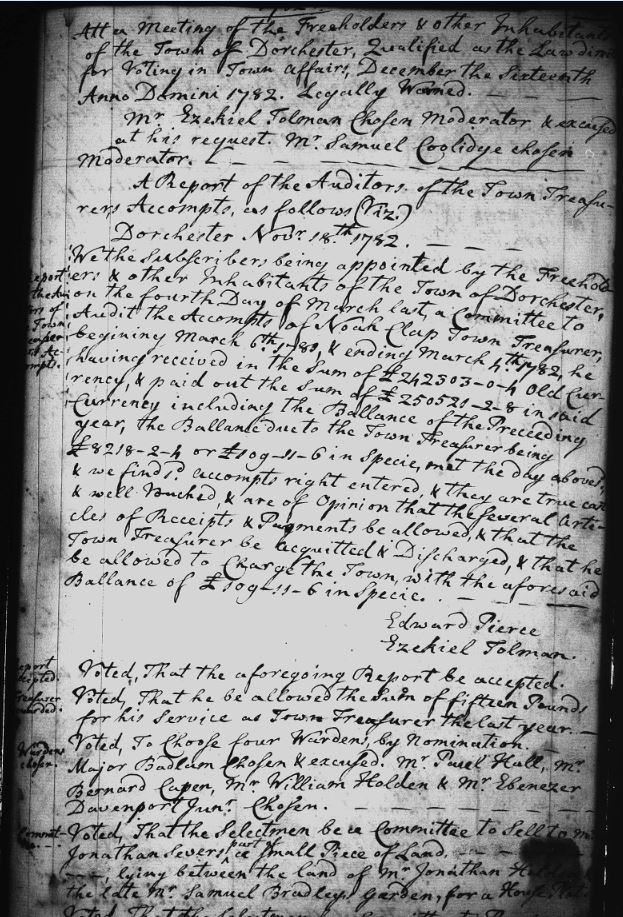 Att a Meeting of the Freeholders & other Inhabitants
of the Town of Dorchester, Qualified as the Law directs
for Voting in Town affairs, December the Sixteenth
Anno Domini 1782. Legally Warned.
Mr. Ezekiel Tolman Chosen Moderator & excused
at his request. Mr. Samuel Coolidge chosen
Moderator.
A Report of the Auditors of the Town Treasu-
rers Accompts, as follows (Viz.)
Dorchester Novr. 18.th 1782.
We the Subscribers being appointed by the Freehold-
ers & other Inhabitants of the Town of Dorchester,
on the fourth Day of March last, a Committee to
Audit the Accompts of Noah Clap Town Treasurer,
begining March 6.th 1781, & ending March 4.th 1782, he
having received in the Sum of £242303-0-4 Old Cur-
rency, & paid out the Sum of £250521-2-8 in said
Currency including the Ballance of the Preceeding
year, the Ballance due to the Town Treasurer being
£8218-2-4 or £109-11-6 in Specie, met the day above,
& we find sd. accompts right entered, & they are true cast
& well Vouched, & are of Opinion that the several Arti-
cles of Receipts & Payments be allowed, & that the
Town Treasurer be Acquitted & Discharged, & that he
be allowed to Charge the Town, with the aforesaid
Ballance of £109-11-6 in Specie.
Edward Pierce
Ezekiel Tolman.
Voted, That the aforegoing Report be accepted.
Voted, That he be allowed the Sum of fifteen Pounds
for his Service as Town Treasurer the last year.
Voted, To Choose four Wardens, by Nomination.
Wardens
chosen.
Major Badlam Chosen & excused. Mr. Paul Hall, Mr.
Bernard Capen, Mr. William Holden & Mr. Ebenezer
Davenport Junr. Chosen.
Voted, That the Selectmen be a Committee to Sell to Mr.
Jonathan Severs, part of a Small Piece of Land,
lying between the land of Mr. Jonathan
the late Mr. Samuel Bradleys Garden, for a House Plat.
Voted That the Selectmen